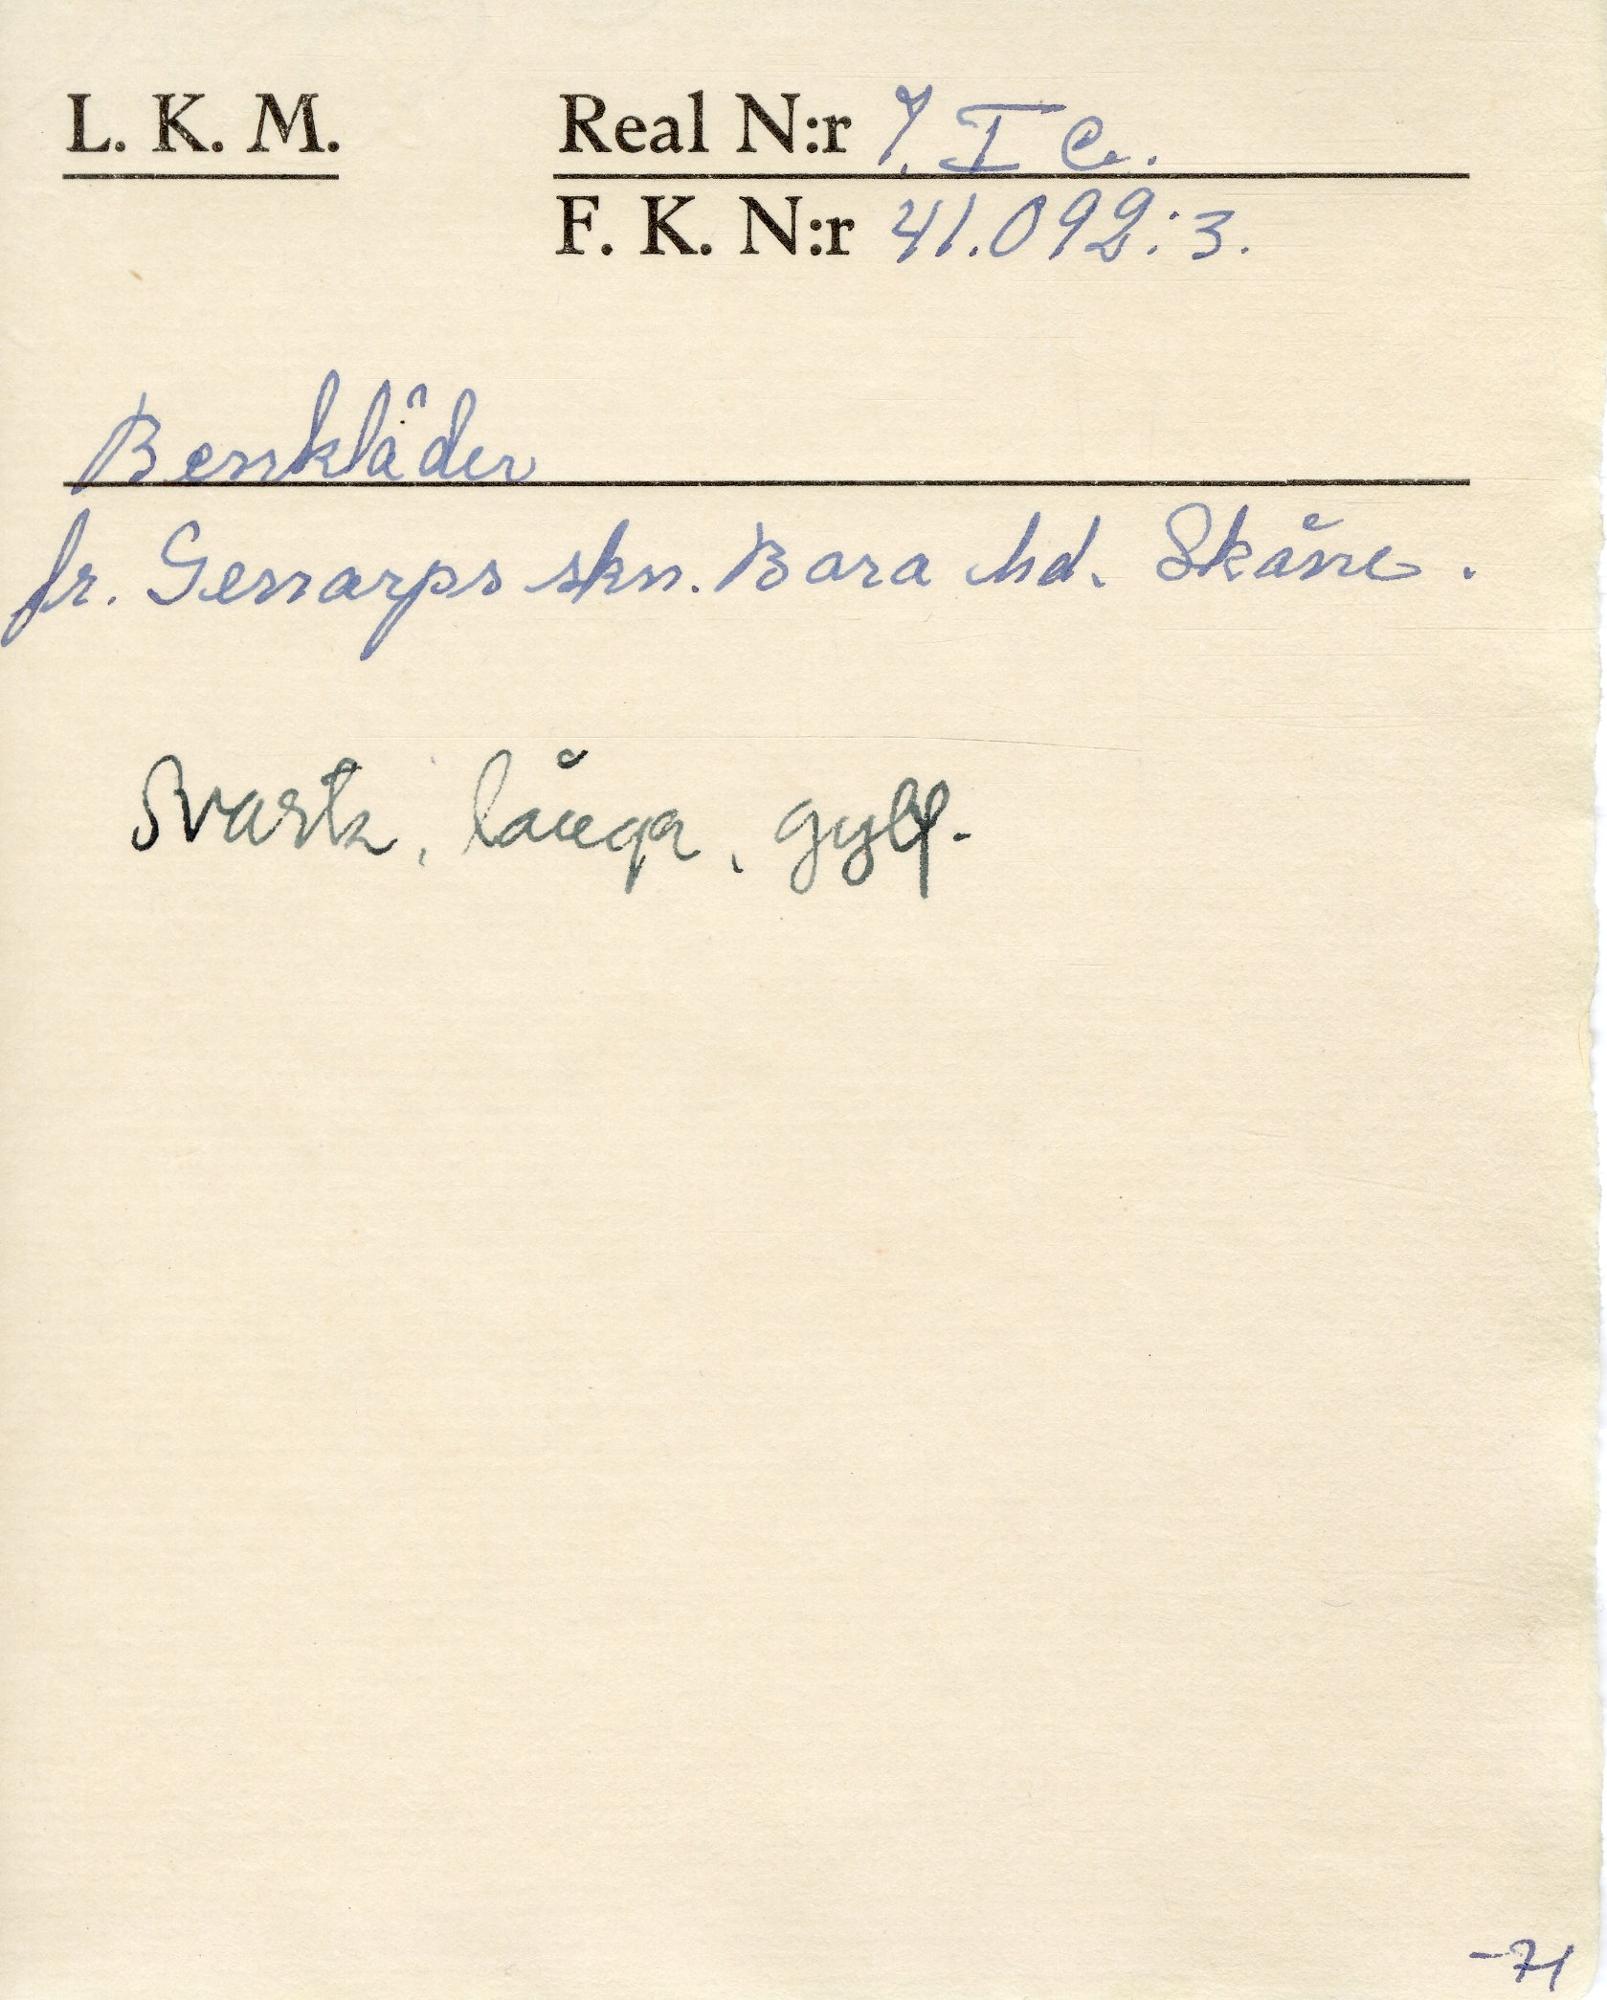 L. K. M. Real N:r 7. I c.
F. K. N:r 41.092:3.
Benkläder
fr. Genarps skn. Bara hd. Skåne.
Svarta, långa, gylf.
-71